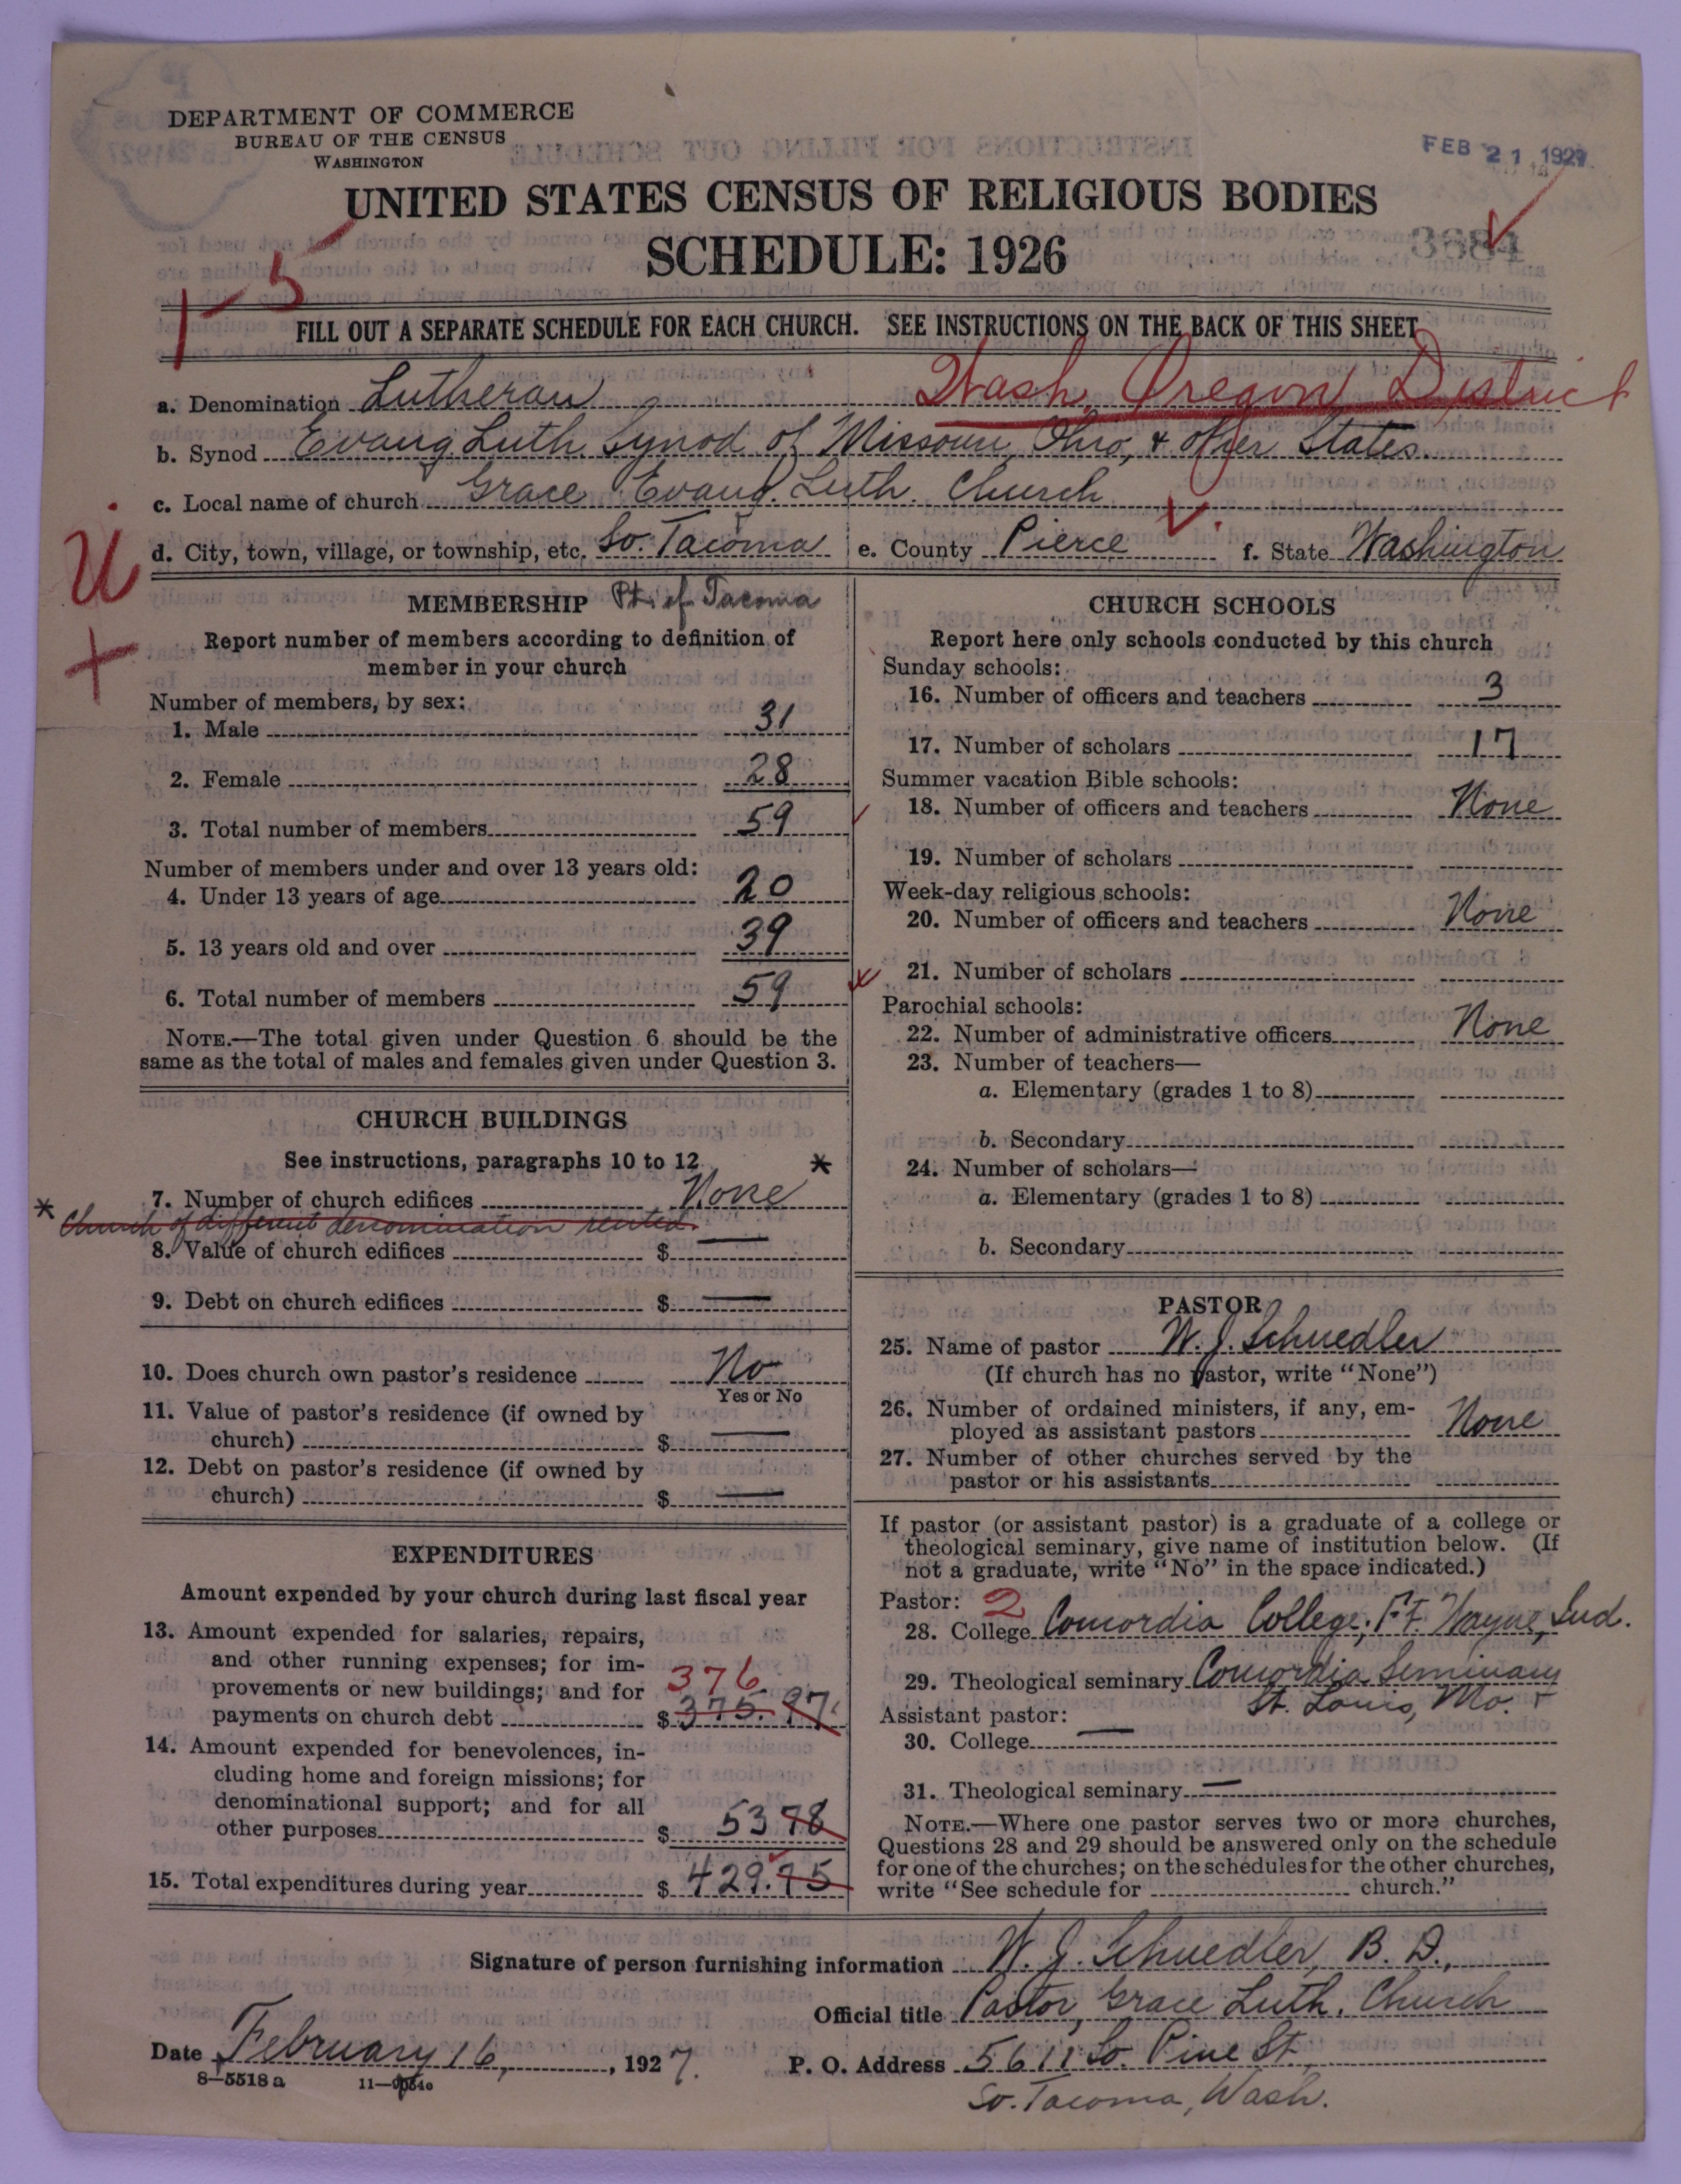 DEPARTMENT OF COMMERCE
BUREAU OF THE CENSUS
WASHINGTON
FEB 21 1927
UNITED STATES CENSUS OF RELIGIOUS BODIES
SCHEDULE: 1926
3684
1-5
FILL OUT A SEPARATE SCHEDULE FOR EACH CHURCH. SEE INSTRUCTIONS ON THE BACK OF THIS SHEET
Wash. Oregon District
a. Denomination Lutheran
b. Synod Evang. Luth. Synod of Missouri, Ohio, & other States.
c. Local name of church Grace Evang. Luth. Church
d. City, town, village, or township, etc. So. Tacoma e. County Pierce f. State Washington
U
+
MEMBERSHIP Pt. of Tacoma
Report number of members according to definition of
member in your church
Number of members, by sex:
1. Male 31
2. Female 28
3. Total number of members 59
Number of members under and over 13 years old:
4. Under 13 years of age 20
5. 13 years old and over 39
6. Total number of members 59
NOTE.—The total given under Question 6 should be the
same as the total of males and females given under Question 3.
CHURCH BUILDINGS
See instructions, paragraphs 10 to 12
7. Number of church edifices None *
* Church of different denomination rented.
8. Value of church edifices $ —
9. Debt on church edifices $ —
10. Does church own pastor's residence No
Yes or No
11. Value of pastor's residence (if owned by
church) $ —
12. Debt on pastor's residence (if owned by
church) $ —
EXPENDITURES
Amount expended by your church during last fiscal year
13. Amount expended for salaries, repairs,
and other running expenses; for im-
provements or new buildings; and for 376
payments on church debt $ 375.97
14. Amount expended for benevolences, in-
cluding home and foreign missions; for
denominational support; and for all
other purposes $ 53 78
15. Total expenditures during year $ 429.75
CHURCH SCHOOLS
Report here only schools conducted by this church
Sunday schools:
16. Number of officers and teachers 3
17. Number of scholars 17
Summer vacation Bible schools:
18. Number of officers and teachers None
19. Number of scholars
Week-day religious schools:
20. Number of officers and teachers None
21. Number of scholars
Parochial schools:
22. Number of administrative officers None
23. Number of teachers—
a. Elementary (grades 1 to 8)
b. Secondary
24. Number of scholars—
a. Elementary (grades 1 to 8)
b. Secondary
PASTOR
25. Name of pastor W. J. Schuedler
(If church has no pastor, write "None")
26. Number of ordained ministers, if any, em-
ployed as assistant pastors None
27. Number of other churches served by the
pastor or his assistants
If pastor (or assistant pastor) is a graduate of a college or
theological seminary, give name of institution below. (If
not a graduate, write "No" in the space indicated.)
Pastor: 2
28. College Concordia College, Ft. Wayne, Ind.
29. Theological seminary Concordia Seminary
St. Louis, Mo.
Assistant pastor:
30. College —
31. Theological seminary —
NOTE.—Where one pastor serves two or more churches,
Questions 28 and 29 should be answered only on the schedule
for one of the churches; on the schedules for the other churches,
write "See schedule for church."
Signature of person furnishing information W. J. Schuedler, B. D.,
Official title Pastor, Grace Luth. Church
Date February 16, 1927. P. O. Address 5611 So. Pine St.
So. Tacoma, Wash.
8—5518 a